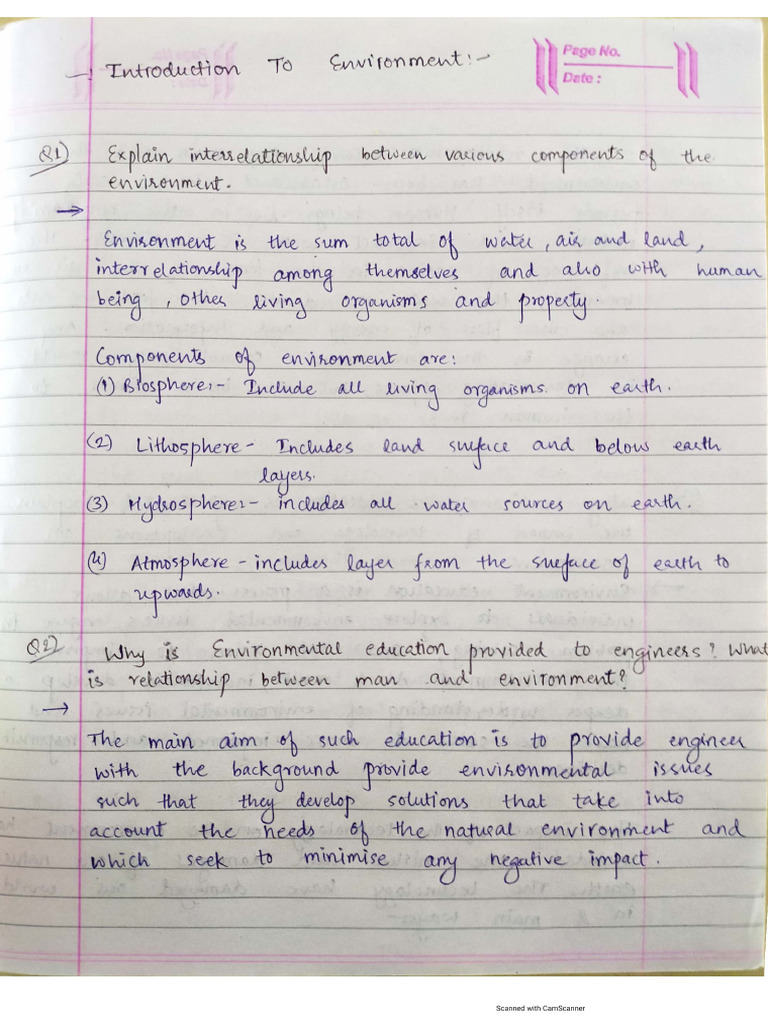 -: Introduction To Environment:-
Page No.
Date :
Q1) Explain interrelationship between various components of the
environment.
→
Environment is the sum total of water, air and land,
interrelationship among themselves and also with human
being, other living organisms and property.
Components of environment are:
(1) Biosphere:- Include all living organisms on earth.
(2) Lithosphere - Includes land surface and below earth
layers.
(3) Hydrosphere:- includes all water sources on earth.
(4) Atmosphere - includes layer from the surface of earth to
upwards.
Q2) Why is Environmental education provided to engineers? What
is relationship between man and environment?
→
The main aim of such education is to provide engineer
with the background provide environmental issues
such that they develop solutions that take into
account the needs of the natural environment and
which seek to minimise any negative impact.
Scanned with CamScanner